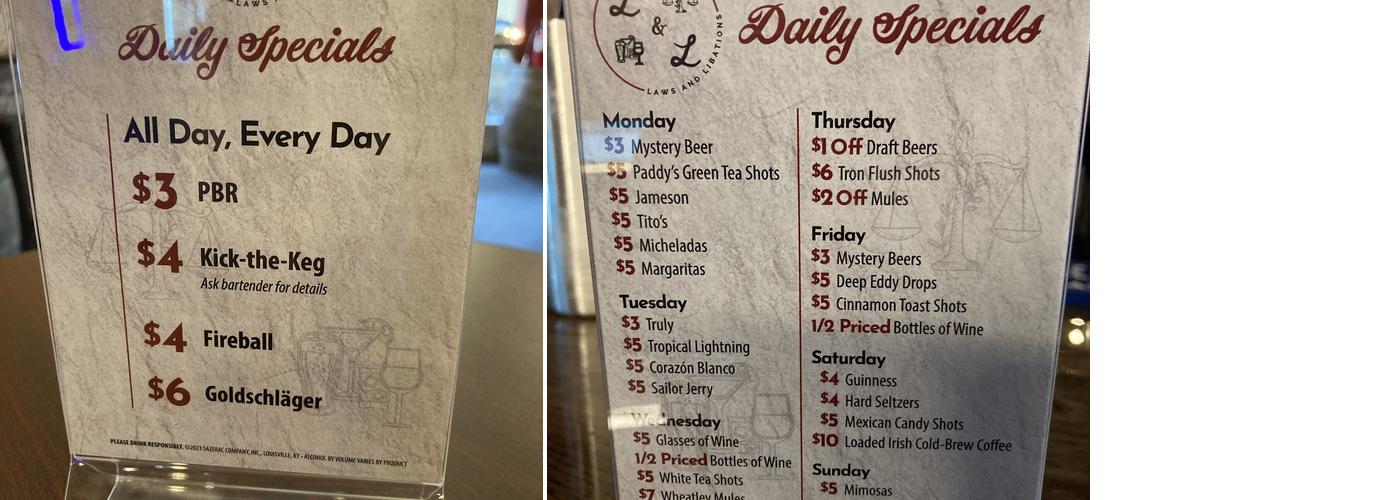 LAWS
Daily Specials
All Day, Every Day
$3 PBR
$4 Kick-the-Keg
Ask bartender for details
$4 Fireball
$6 Goldschläger
PLEASE DRINK RESPONSIBLY. ©2023 SAZERAC COMPANY, INC., LOUISVILLE, KY • ALCOHOL BY VOLUME VARIES BY PRODUCT
L
&
L
LAWS AND LIBATIONS
Daily Specials
Monday
$3 Mystery Beer
$5 Paddy's Green Tea Shots
$5 Jameson
$5 Tito's
$5 Micheladas
$5 Margaritas
Tuesday
$3 Truly
$5 Tropical Lightning
$5 Corazón Blanco
$5 Sailor Jerry
Wednesday
$5 Glasses of Wine
1/2 Priced Bottles of Wine
$5 White Tea Shots
$7 Wheatley Mules
Thursday
$1 Off Draft Beers
$6 Tron Flush Shots
$2 Off Mules
Friday
$3 Mystery Beers
$5 Deep Eddy Drops
$5 Cinnamon Toast Shots
1/2 Priced Bottles of Wine
Saturday
$4 Guinness
$4 Hard Seltzers
$5 Mexican Candy Shots
$10 Loaded Irish Cold-Brew Coffee
Sunday
$5 Mimosas